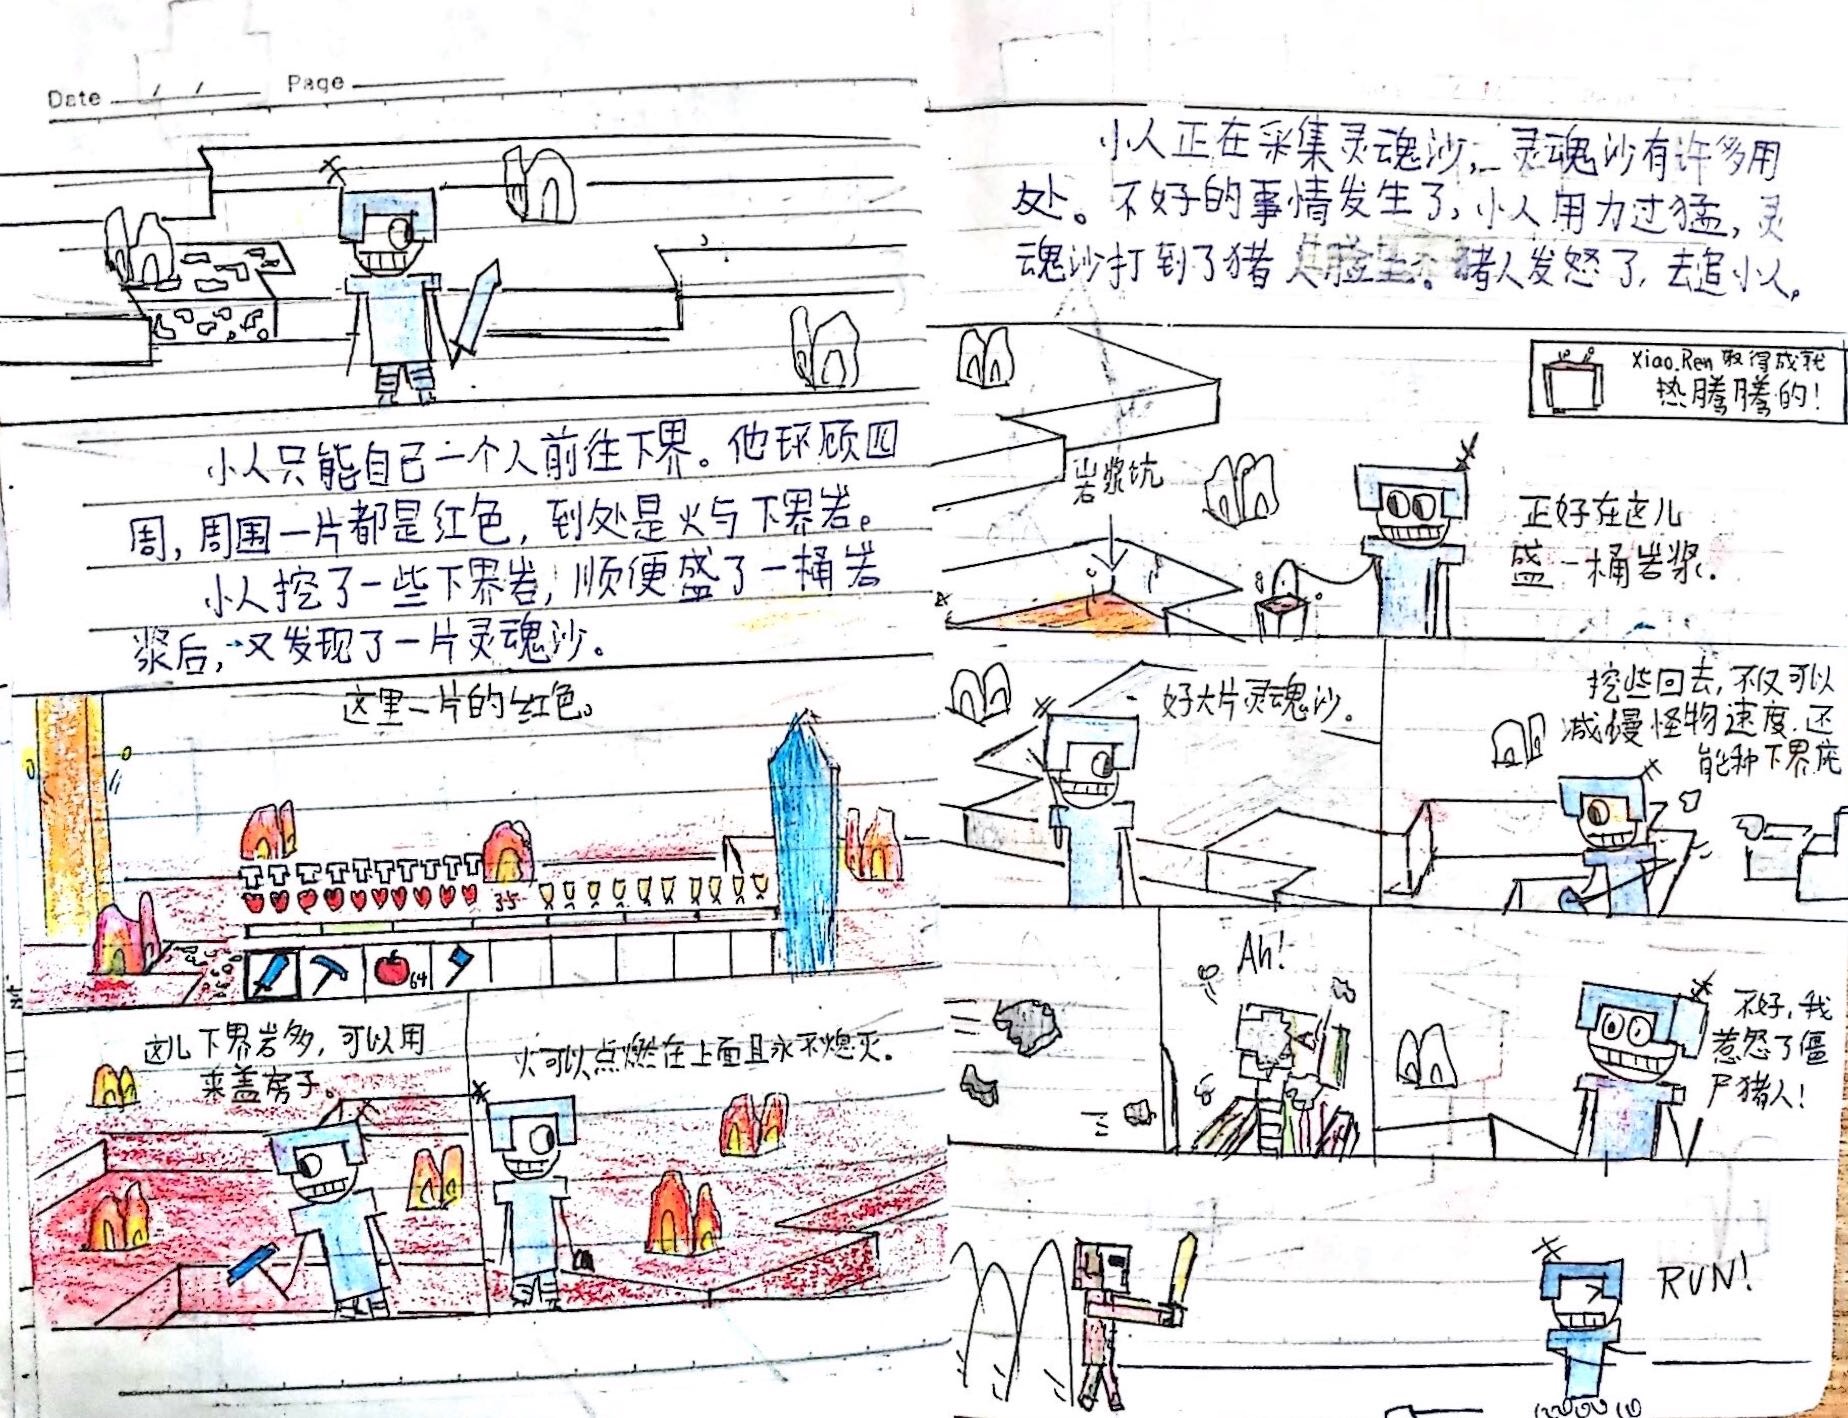 Date / / Page
小人只能自己一个人前往下界。他环顾四
周，周围一片都是红色，到处是火与下界岩。
小人挖了一些下界岩，顺便盛了一桶岩
浆后，又发现了一片灵魂沙。
这里一片的红色。
35
64
这儿下界岩多，可以用
来盖房子。
火可以点燃在上面且永不熄灭。
小人正在采集灵魂沙，灵魂沙有许多用
处。不好的事情发生了，小人用力过猛，灵
魂沙打到了猪人脸上。猪人发怒了，去追小人。
Xiao.Ren取得成就
热腾腾的！
岩浆坑
正好在这儿
盛一桶岩浆.
好大片灵魂沙。
挖些回去，不仅可以
减慢怪物速度，还
能种下界疣
Ah!
不好，我
惹怒了僵
尸猪人！
RUN!